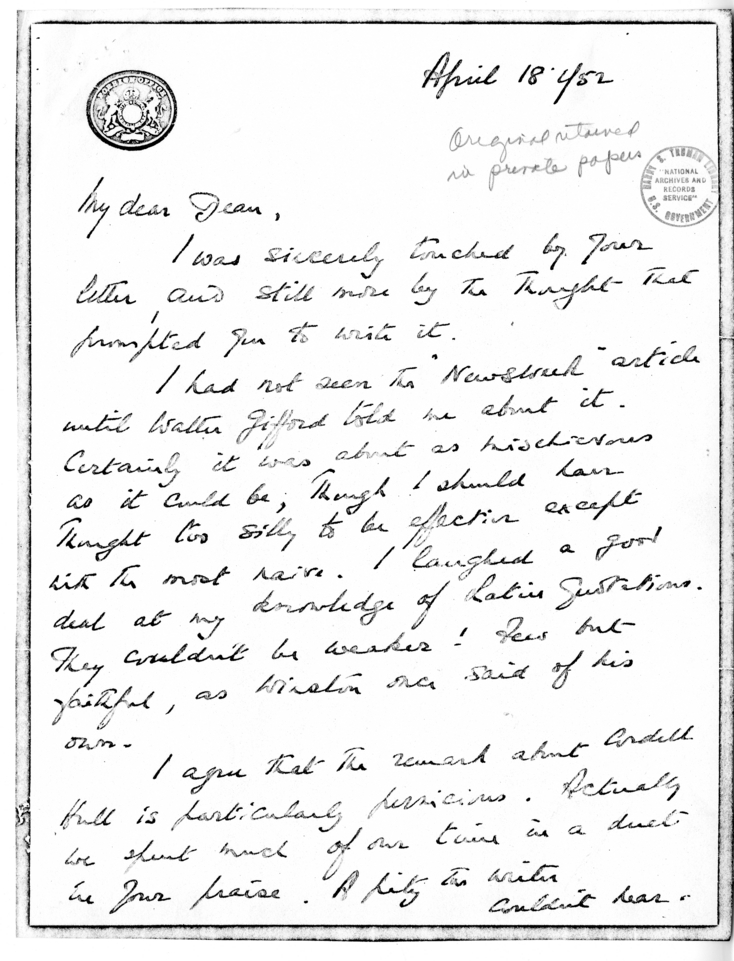 April 18. 1/52
Original retained
in private papers
HARRY S. TRUMAN LIBRARY
"NATIONAL
ARCHIVES AND
RECORDS
SERVICE"
U.S. GOVERNMENT
FOREIGN OFFICE
My dear Dean,
I was sincerely touched by your
letter, and still more by the thought that
prompted you to write it.
I had not seen the "Newsweek" article
until Walter Gifford told me about it.
Certainly it was about as mischievous
as it could be, though I should have
thought too silly to be effective except
with the most naive. I laughed a good
deal at my knowledge of Latin Quotations.
They couldn't be weaker! Few but
faithful, as Winston once said of his
own.
I agree that the remark about Cordell
Hull is particularly pernicious. Actually
we spent much of our time in a duet
in your praise. A pity the writer
couldn't hear.